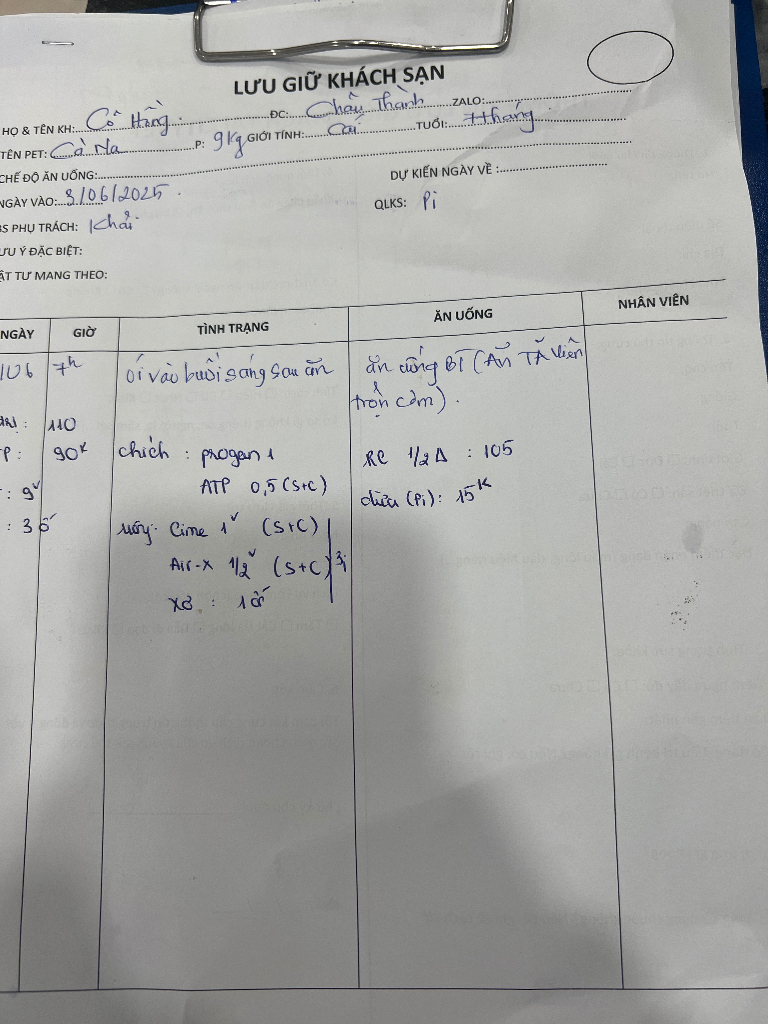 LƯU GIỮ KHÁCH SẠN
HỌ & TÊN KH: Cô Hằng ĐC: Châu Thành ZALO:
TÊN PET: Cà Na P: 9kg GIỚI TÍNH: Cái TUỔI: 7 tháng
CHẾ ĐỘ ĂN UỐNG: DỰ KIẾN NGÀY VỀ :
NGÀY VÀO: 3/06/2025 QLKS: Pi
BS PHỤ TRÁCH: Khải
LƯU Ý ĐẶC BIỆT:
VẬT TƯ MANG THEO:
NGÀY GIỜ TÌNH TRẠNG ĂN UỐNG NHÂN VIÊN
/06 7h ói vào buổi sáng sau ăn ăn uống BT (Ăn TĂ viên
trộn cơm).
: 110
P: 90K chích : progan 1 RC 1/2 : 105
ATP 0,5 (S+C) (Pi): 15K
: 9v
: 3 ố uống: Cime 1v (S+C)
Air-X 1/2v (S+C) 3
xơ : 1 ố